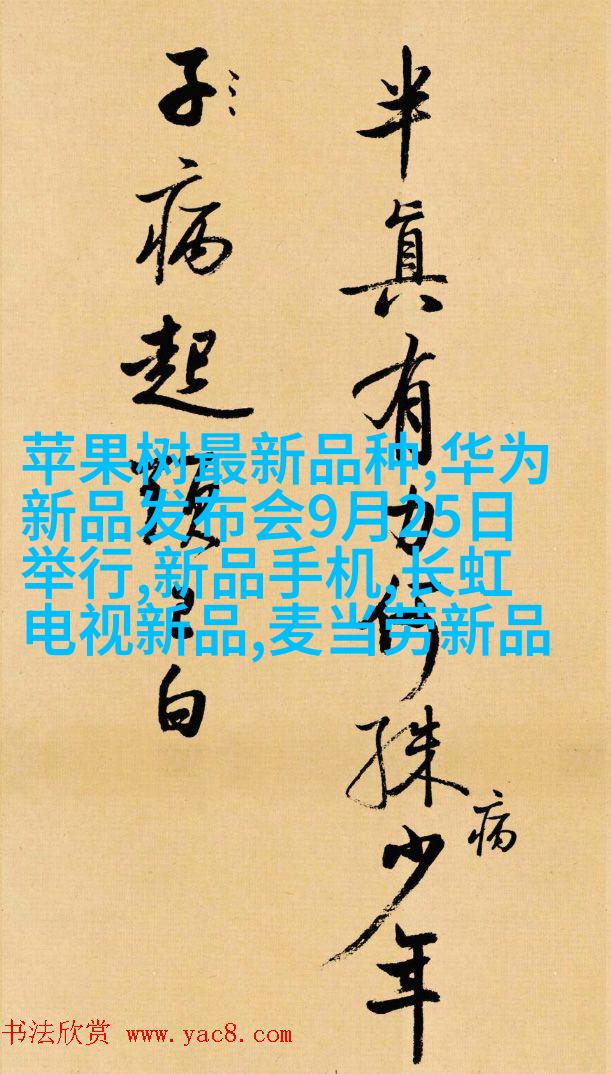 半真有力何殊少年
病
子病起頭已白
苹果树最新品种,华为
新品发布会9月25日
举行,新品手机,长虹
电视新品,麦当劳新品
书法欣赏 www.yac8.com